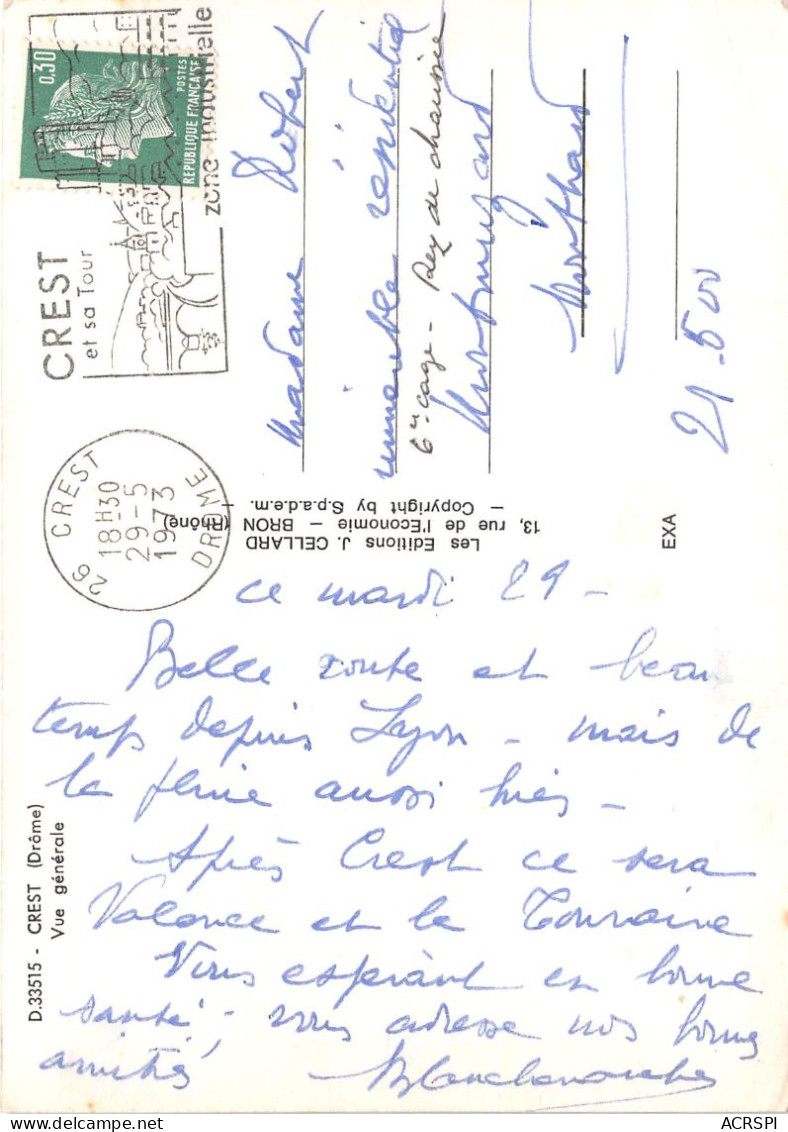 0.30
POSTES
REPUBLIQUE FRANÇAISE
CREST
et sa Tour
zone industrielle
26 CREST
18H30
29-5
1973
DROME
Madame Robert
immeuble résidentiel
6e cage - Rez de chaussée
Montbard
21-500
Les Editions J. CELLARD
13, rue de l'Economie — BRON (Rhône)
— Copyright by S.p.a.d.e.m. —
EXA
D.33515 - CREST (Drôme)
Vue générale
ce mardi 29 -
Belle route et beau
temps depuis Lyon - mais de
la pluie aussi hier -
Après Crest ce sera
Valence et la Touraine
Vous espérant en bonne
santé, vous adresse nos bonnes
amitiés
ACRSPI